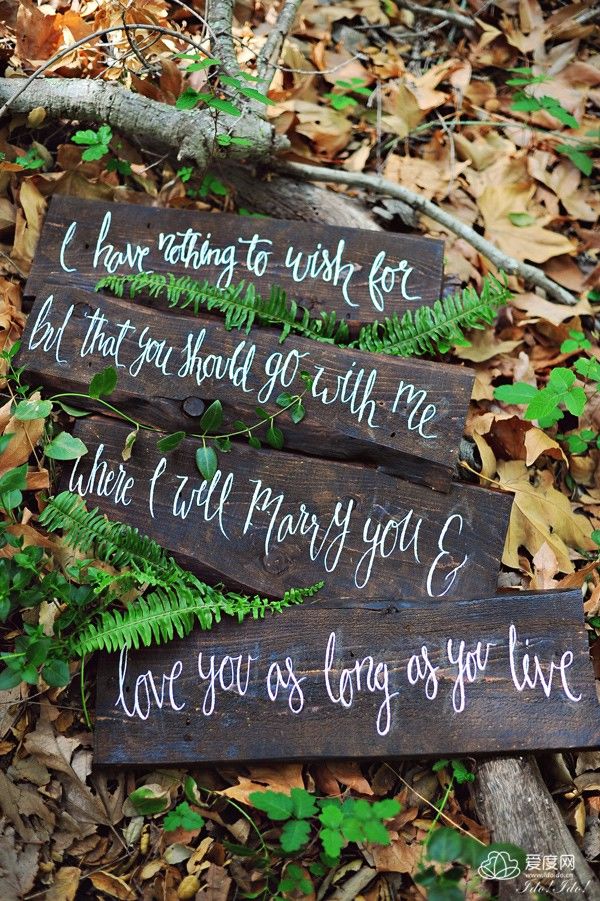 I have nothing to wish for
but that you should go with me
where I will Marry you &
love you as long as you live
爱度网
www.idoido.cn
I Do! I Do!